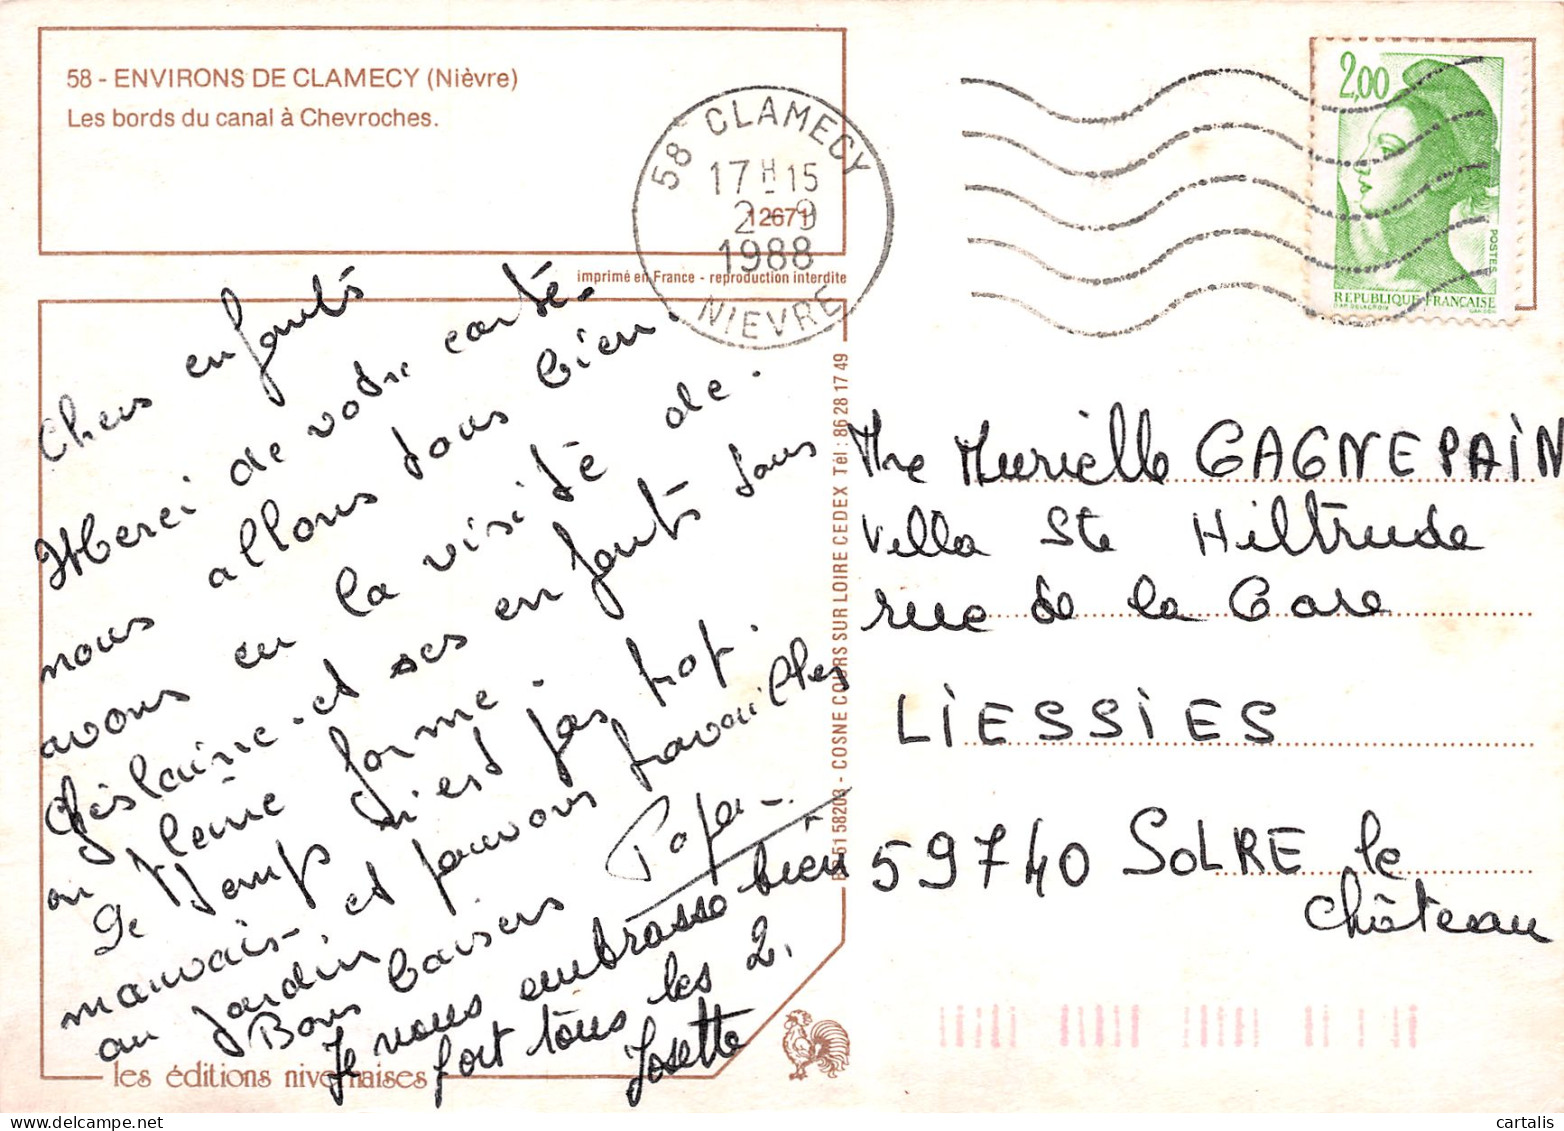 58 - ENVIRONS DE CLAMECY (Nièvre)
Les bords du canal à Chevroches.
12671
imprimé en France - reproduction interdite
58 CLAMECY
17 H 15
2 - 9
1988
NIEVRE
2,00
POSTES
REPUBLIQUE FRANÇAISE
Chers enfants
Merci de votre carte.
nous allons tous bien.
avons eu la visite de.
Ghislaine. et ses enfants tous
en pleine forme.
Le temps n'est pas trop.
mauvais - et pouvons travailler
au jardin
Bons baisers Papa -
Je vous embrasse bien
fort tous les 2.
Josette
les éditions nivernaises
51 58203 - COSNE COURS SUR LOIRE CEDEX Tél : 86 28 17 49
Mre Murielle GAGNEPAIN
Villa Ste Hiltrude
rue de la Gare
LIESSIES
59740 SOLRE le
Château
www.cartalis.com